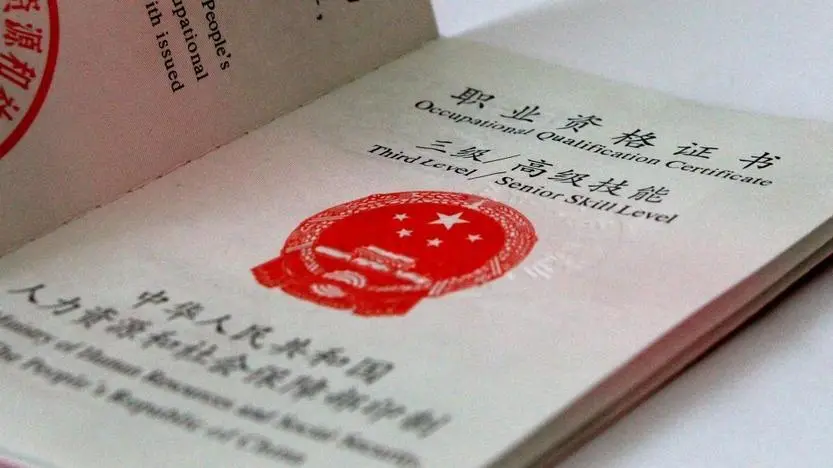 People's
upational
ith issued
资源和社
职业资格证书
Occupational Qualification Certificate
三级/高级技能
Third Level/Senior Skill Level
中华人民共和国
人力资源和社会保障部印制
Ministry of Human Resources and Social Security,
The People's Republic of China